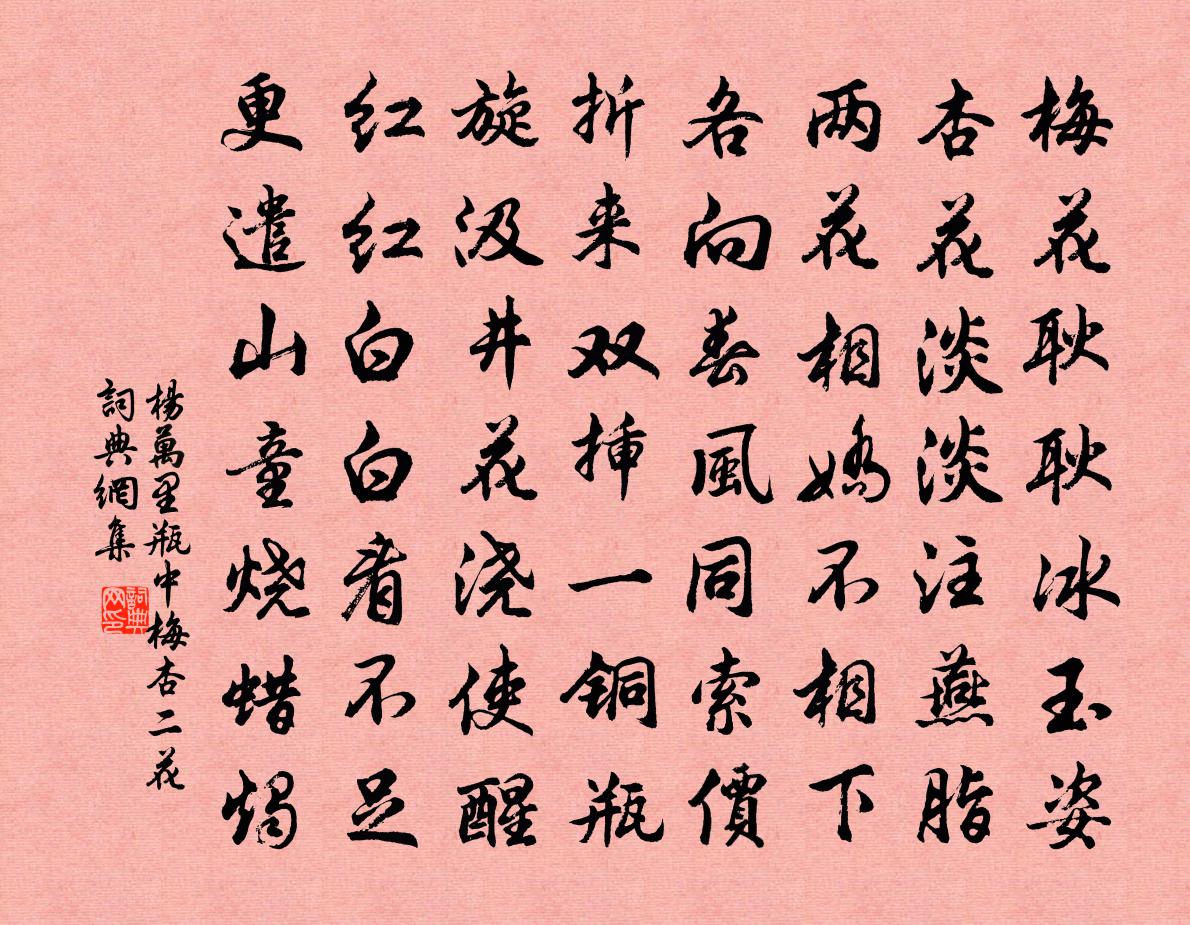 梅花耿耿冰玉姿
杏花淡淡注燕脂
两花相娇不相下
各向春風同索價
折来双插一铜瓶
旋汲井花浇使醒
红红白白看不足
更遣山童烧蜡烛
楊萬里瓶中梅杏二花
詞典網集
詞典
网印